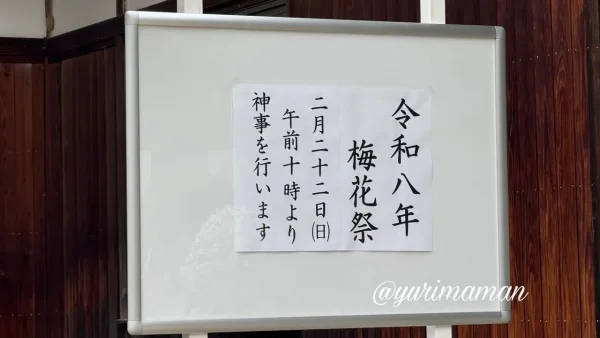 令和八年
梅花祭
二月二十二日(日)
午前十時より
神事を行います
@yurimaman